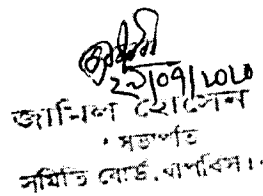 ২৯/০৭/২০২০
জামিল হোসেন
সভাপতি
সমিতি বোর্ড, বাপবিস।